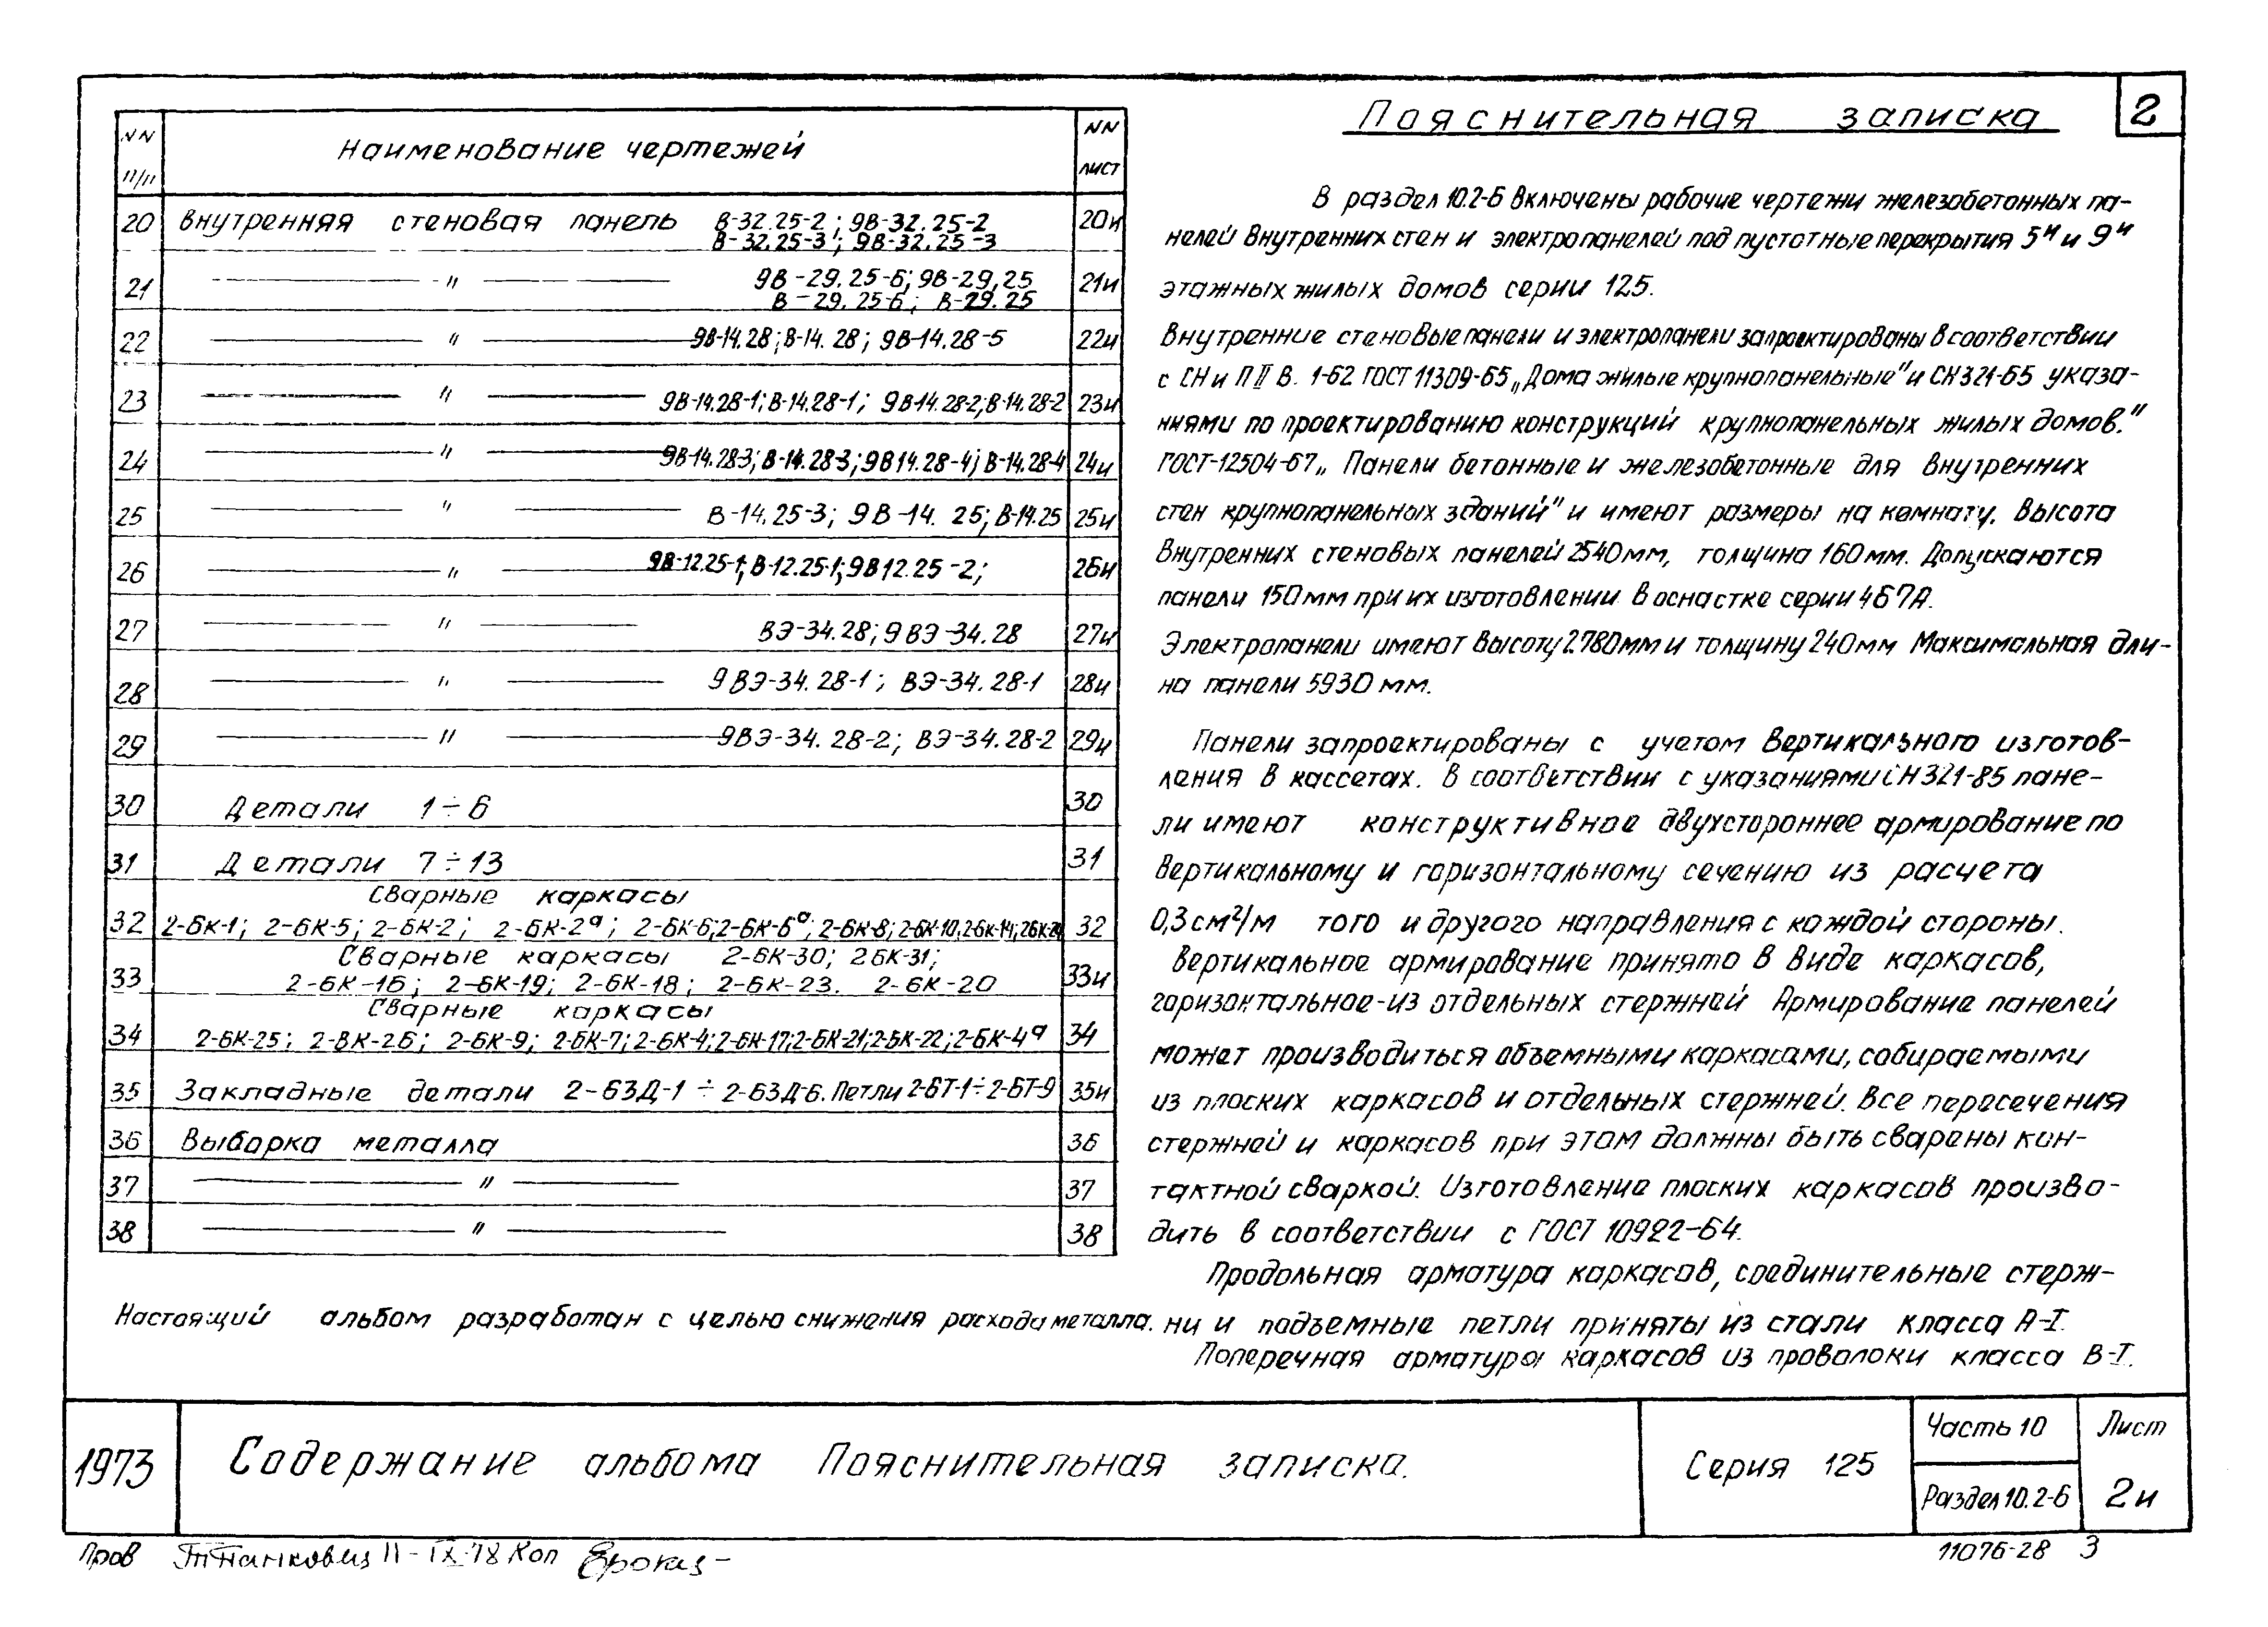 2
NN п/п Наименование чертежей NN лист
20 Внутренняя стеновая панель В-32.25-2; 9В-32.25-2 20и
В-32.25-3; 9В-32.25-3
21 — " — 9В-29.25-6; 9В-29,25 21и
В-29.25-6; В-29.25
22 — " — 9В-14.28; В-14.28; 9В-14.28-5 22и
23 — " — 9В-14.28-1; В-14.28-1; 9В-14.28-2; В-14.28-2 23и
24 — " — 9В-14.28-3; В-14.28-3; 9В14.28-4; В-14.28-4 24и
25 — " — В-14.25-3; 9В-14.25; В-14.25 25и
26 — " — 9В-12.25-1; В-12.25-1; 9В12.25-2; 26и
27 — " — ВЭ-34.28; 9ВЭ-34.28 27и
28 — " — 9ВЭ-34.28-1; ВЭ-34.28-1 28и
29 — " — 9ВЭ-34.28-2; ВЭ-34.28-2 29и
30 Детали 1÷6 30
31 Детали 7÷13 31
Сварные каркасы
32 2-6К-1; 2-6К-5; 2-6К-2; 2-6К-2а; 2-6К-6; 2-6К-6а; 2-6К-8; 2-6К-10, 2-6К-14; 32
Сварные каркасы 2-6К-30; 26К-31;
33 2-6К-16; 2-6К-19; 2-6К-18; 2-6К-23. 2-6К-20 33и
Сварные каркасы
34 2-6К-25; 2-8К-26; 2-6К-9; 2-6К-7; 2-6К-4; 2-6К-17; 2-6К-21; 2-6К-22; 2-6К-4а 34
35 Закладные детали 2-63Д-1 ÷ 2-63Д-6. Петли 2-6Т-1÷2-6Т-9 35и
36 Выборка металла 36
37 — " — 37
38 — " — 38
Настоящий альбом разработан с целью снижения расхода металла.
Пояснительная записка
В раздел 10.2-6 включены рабочие чертежи железобетонных па-
нелей внутренних стен и электропанелей под пустотные перекрытия 5и и 9и
этажных жилых домов серии 125.
Внутренние стеновые панели и электропанели запроектированы в соответствии
с СНиП II В. 1-62 ГОСТ 11309-65 „Дома жилые крупнопанельные" и СН321-65 указа-
ниями по проектированию конструкций крупнопанельных жилых домов."
ГОСТ-12504-67 „ Панели бетонные и железобетонные для внутренних
стен крупнопанельных зданий" и имеют размеры на комнату. Высота
внутренних стеновых панелей 2540мм, толщина 160мм. Допускаются
панели 150мм при их изготовлении в оснастке серии 467А.
Электропанели имеют высоту 2780мм и толщину 240мм Максимальная дли-
на панели 5930 мм.
Панели запроектированы с учетом вертикального изготов-
ления в кассетах. В соответствии с указаниями СН321-85 пане-
ли имеют конструктивное двухстороннее армирование по
вертикальному и горизонтальному сечению из расчета
0,3 см²/м того и другого направления с каждой стороны.
Вертикальное армирование принято в виде каркасов,
горизонтальное-из отдельных стержней Армирование панелей
может производиться объемными каркасами, собираемыми
из плоских каркасов и отдельных стержней. Все пересечения
стержней и каркасов при этом должны быть сварены кон-
тактной сваркой. Изготовление плоских каркасов произво-
дить в соответствии с ГОСТ 10922-64.
Продольная арматура каркасов, соединительные стерж-
ни и подъемные петли приняты из стали класса А-I.
Поперечная арматура каркасов из проволоки класса В-I.
1973
Содержание альбома Пояснительная записка.
Серия 125
Часть 10
Раздел 10.2-6
Лист
2и
Пров II-IX-78 Коп
11076-28 3